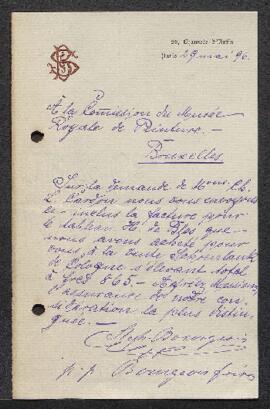 Chaussée d'Antin
Paris 29 mai 96.
A la Commission du Musée
Royale de Peinture.—
Bruxelles
Sur la demande de Mons. Ch.
L. Cardon nous vous envoyons
ci-inclus la facture pour
le tableau H. de Bles que
nous avons acheté pour
vous à la vente
de Cologne s'élevant total
à frcs 865.— Agréez, Messieurs,
l'assurance de notre con-
sidération la plus distin-
guée.—
Bourgeois
p.p. Bourgeois frères